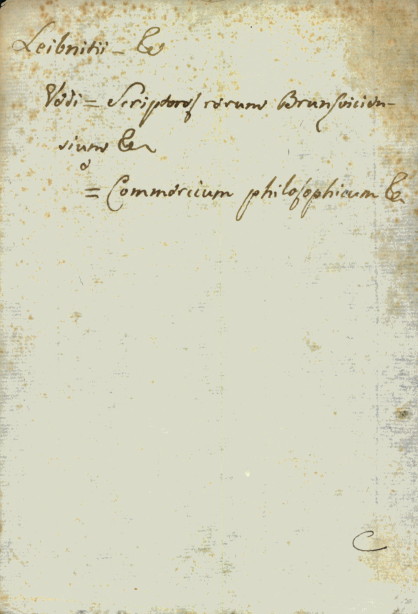 Leibnitii = &c
Vedi = Scriptores rerum Brunsvicien-
sium &c
o
= Commercium philosophicum &c
C